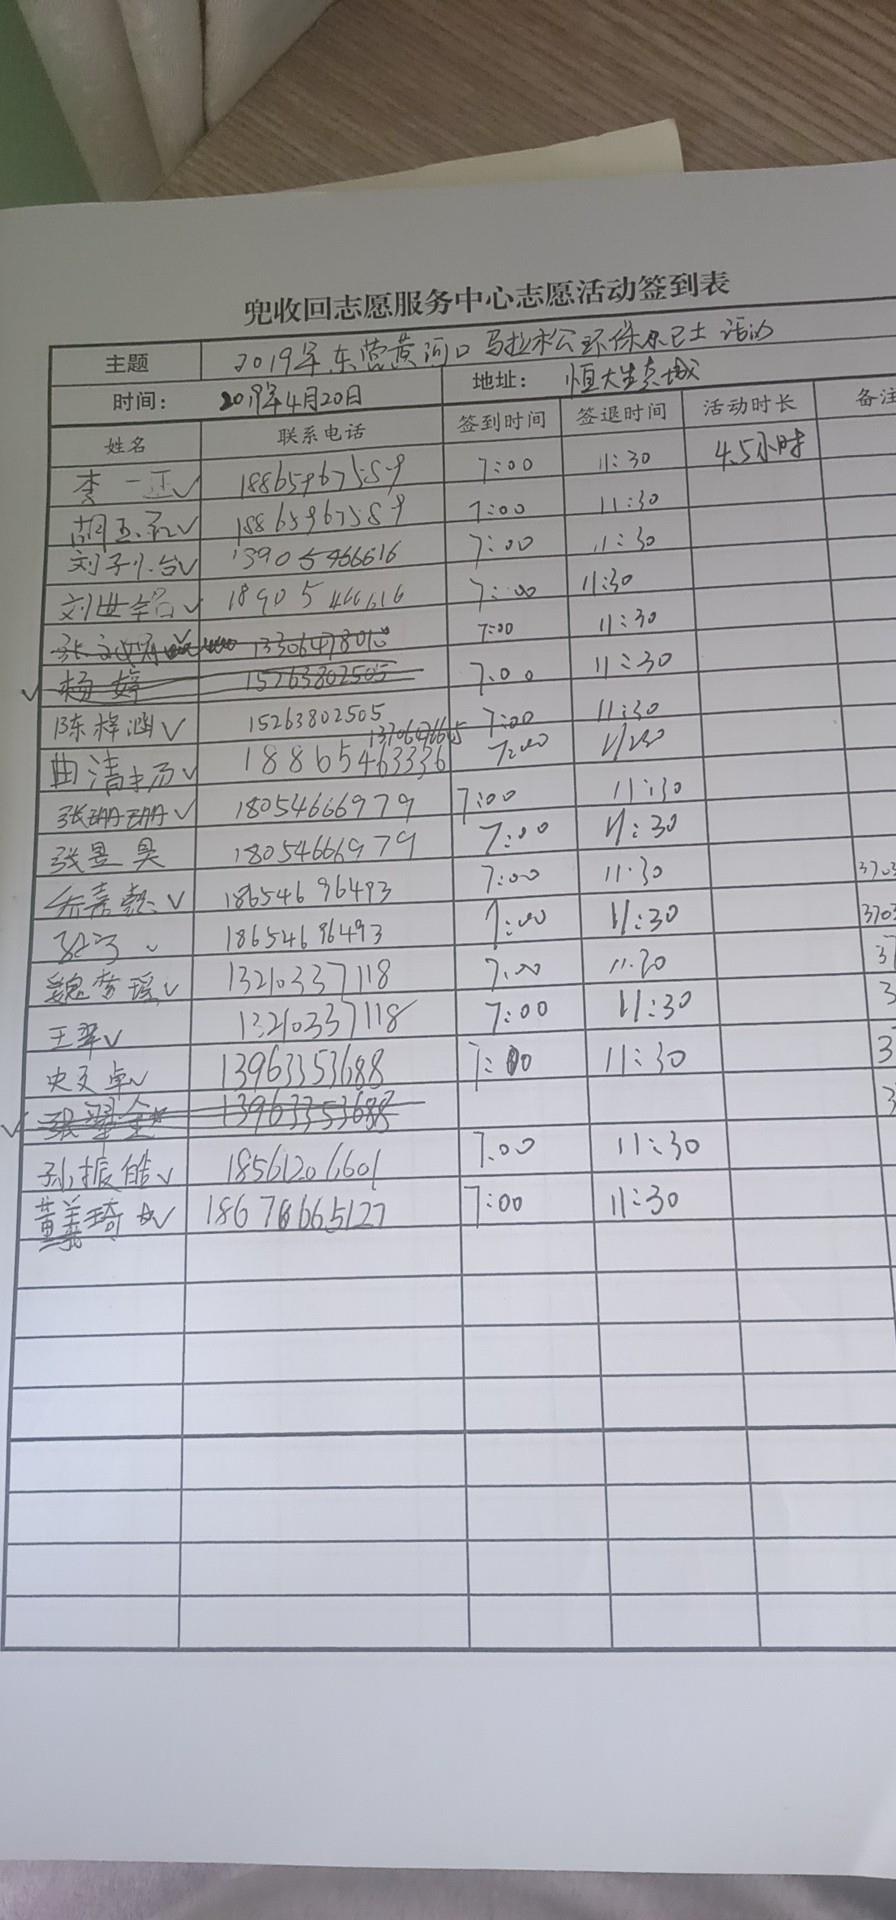 兜收回志愿服务中心志愿活动签到表
主题 2019年东营黄河口马拉松公环保卫士活动
时间： 2019年4月20日 地址： 恒大生态城
姓名 联系电话 签到时间 签退时间 活动时长 备注
李一正✓ 18865967589 7:00 11:30 4.5小时
胡玉 ✓ 18865967589 7:00 11:30
刘子 ✓ 13905466616 7:00 11:30
刘世 ✓ 18905466616 7:00 11:30
张 13306478010 7:00 11:30
✓ 杨婷 15263802505 7:00 11:30
陈梓涵✓ 15263802505 7:00 11:30
13706476665
曲清 ✓ 18865463336 7:00 11:30
张珊珊✓ 18054666979 7:00 11:30
张昱昊 18054666979 7:00 11:30
乔嘉懿✓ 18654696493 7:00 11:30 3703
✓ 18654696493 7:00 11:30 3703
魏梦瑶✓ 13210337118 7:00 11:30 37
王翠✓ 13210337118 7:00 11:30 3
史文卓✓ 13963353688 7:00 11:30 3
✓ 张翠 13963353688 3
孙振皓✓ 18561206601 7:00 11:30
黄美琦 ✓ 18678665127 7:00 11:30